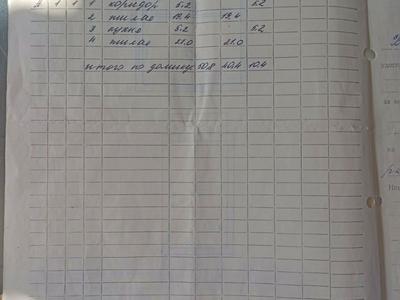 1 1 1 коридор 5.2 5.2
2 жилая 19.4 19.4
3 кухня 5.2 5.2
4 жилая 21.0 21.0
итого по домику 50.8 40.4 10.4